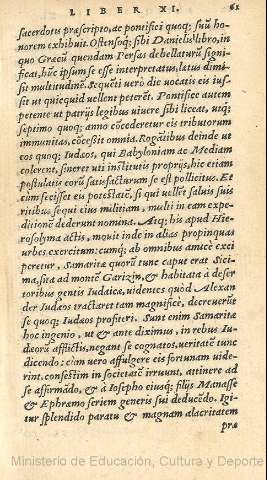 LIBER XI. 61
sacerdotũ præscripto, ac pontifici quoq; suũ ho-
norem exhibuit. Ostensoq; sibi Danielis libro, in
quo Græcũ quendam Persas debellaturũ signi-
ficat, hũc ipsum se esse interpretatus, latus dimi-
sit multitudinẽ. Sequẽti verò die vocatis eis ius-
sit ut quicquid vellent peterẽt. Pontifice autem
petente ut patrijs legibus vivere sibi liceat, utq;
septimo quoq; anno cõcederet eis tributorum
immunitas, cõcessit omnia. Rogãtibus deinde ut
eos quoq; Iudæos, qui Babyloniam ac Mediam
colerent, sineret uti institutis proprijs, hic etiam
postulatis eorũ satisfacturum se est pollicitus. Et
cùm fecisset eis potestatẽ, si qui vellẽt salvis suis
ritibus sequi eius militiam, multi in eam expe-
ditionẽ dederunt nomina. Atq; his apud Hie-
rosolyma actis, movit inde in alias propinquas
urbes exercitum: cumq; ab omnibus amicè exci
peretur, Samaritæ quorũ tunc caput erat Sici-
ma, sita ad montẽ Garizin, & habitata à deser-
toribus gentis Iudaicæ, videntes quòd Alexan
der Iudæos tractaret tam magnificè, decreuerũt
se quoq; Iudæos profiteri. Sunt enim Samaritæ
hoc ingenio, ut & ante diximus, in rebus Iu-
dæorũ afflictis, negant se cognatos, veritatẽ tunc
dicendo: cùm vero affulgere eis fortunam vide-
rint, confestim in societatẽ irruunt, attinere ad
se affirmãdo, & à Iosepho eiusq; filijs Manasse
& Ephramo seriem generis sui deducẽdo. Igi-
tur splendido paratu & magnam alacritatem
præ
Ministerio de Educación, Cultura y Deporte